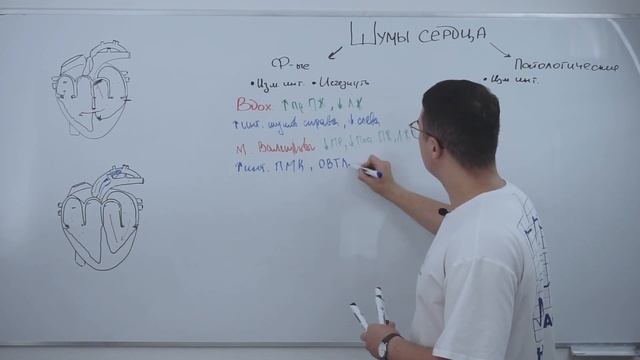 Шумы сердца
Ф-ые
Патологические
• Изм. инт. • Исчезнуть
• Изм. инт.
Вдох ↑пр ПЖ, ↓ЛЖ
↑инт. шумов справа, ↓ слева
М. Вальсальвы ↓ПР, ↓ ПЖ, ЛЖ
↑инт. ПМК, ОВТЛ